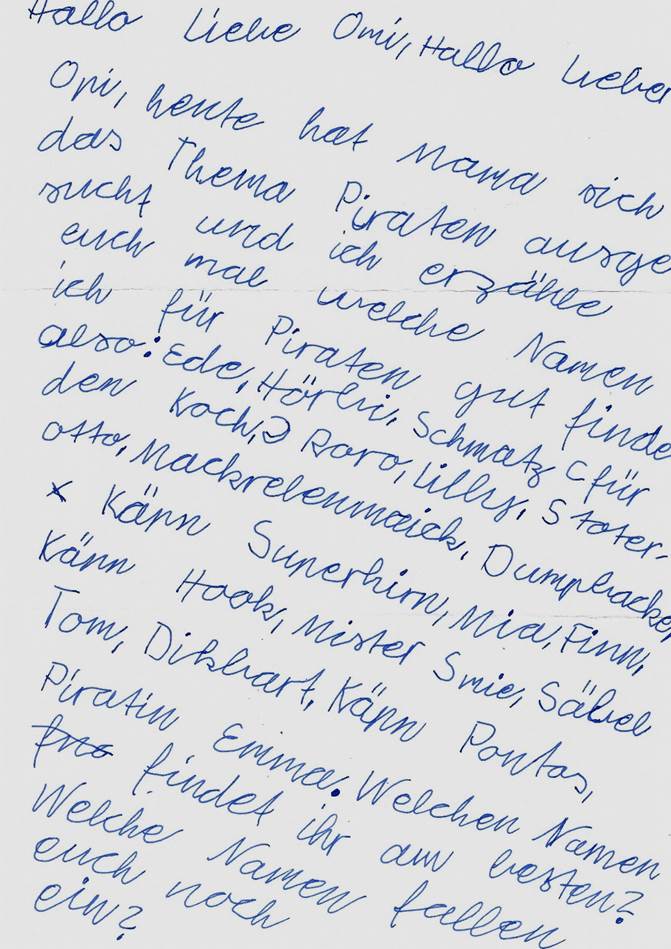 Hallo Liebe Omi, Hallo Lieber
Opi, heute hat Mama sich
das Thema Piraten ausge
sucht und ich erzähle
euch mal welche Namen
ich für Piraten gut finde
also: Ede, Hörbi, Schmatz (für
den Koch,) Roro, Lilly, Stoter-
otto, Mackrelenmaick, Dumpbacke,
x Käpn Superhirn, Mia, Finn,
Käpn Hook, Mister Smie, Säbel
Tom, Dikbart, Käpn Pontos,
Piratin Emma. Welchen Namen
findet ihr am besten?
Welche Namen fallen
euch noch
ein?